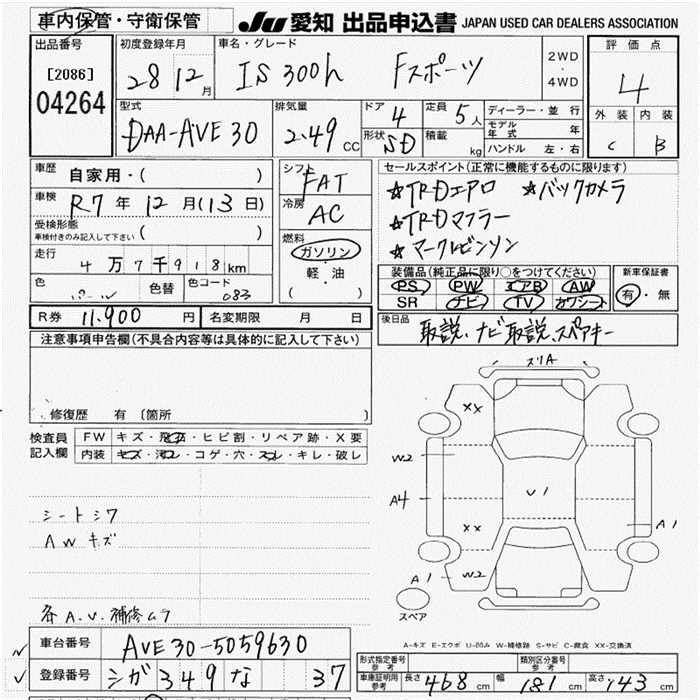 車内保管・守衛保管
JU 愛知 出品申込書 JAPAN USED CAR DEALERS ASSOCIATION
出品番号
[2086]
04264
初度登録年月
28 12月
車名・グレード
IS 300h Fスポーツ
2WD
・
4WD
評価点
4
外装 内装
C B
型式
DAA-AVE30
排気量
2.49 CC
ドア
4
形状
SD
定員
5人
積載
kg
ディーラー・並行
モデル年式 年
ハンドル 左・右
車歴 自家用・( )
車検 R7年 12月(13日)
受検形態
車検付きのみ記入して下さい ( )
走行
4万7千918km
色
パール 色替
色コード
083
シフト
FAT
冷房
AC
燃料
ガソリン
・
軽・油
( )
セールスポイント(正常に機能するものに限ります)
☆TRDエアロ ☆バックカメラ
☆TRDマフラー
☆マークレビンソン
装備品(純正品に限り○をつけてください)
PS PW エアB AW
SR ナビ TV カワシート
新車保証書
有・無
R券 11,900円 名変期限 月 日
後日品
取説、ナビ取説、スペアキー
注意事項申告欄(不具合内容等は具体的に記入して下さい)
修復歴 有 〔箇所 〕
検査員
記入欄
FW キズ・飛石・ヒビ割・リペア跡・X要
内装 キズ・汚レ・コゲ・穴・スレ・キレ・破レ
シートシワ
AWキズ
各A.U.補修ムラ
スリA
XX
W2
A4
U1
XX
A1
A1
W2
スペア
A-キズ E-エクボ U-凹み W-補修跡 S-サビ C-腐食 XX-交換済
車台番号 AVE30-5059630
登録番号 シガ 349 な 37
形式指定番号
参考
類別区分番号
参考
車庫証明用
参考
長さ 468cm 幅 181cm 高さ 143cm